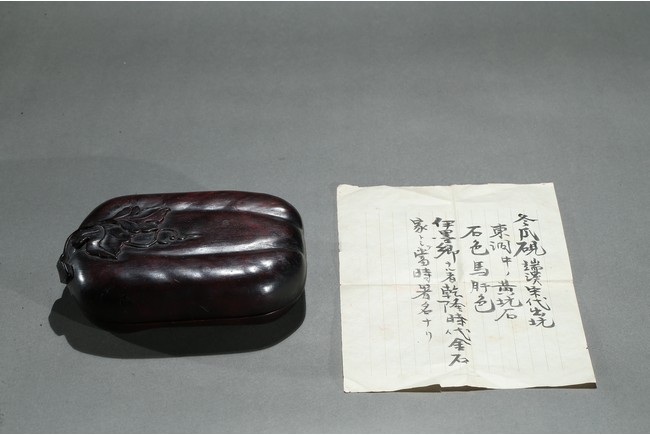 冬瓜硯 端溪宋代出坑
東洞中ノ黄坑石
石色馬肝色
伊墨卿ハ者乾隆時代金石
家ニ當時署名ナリ